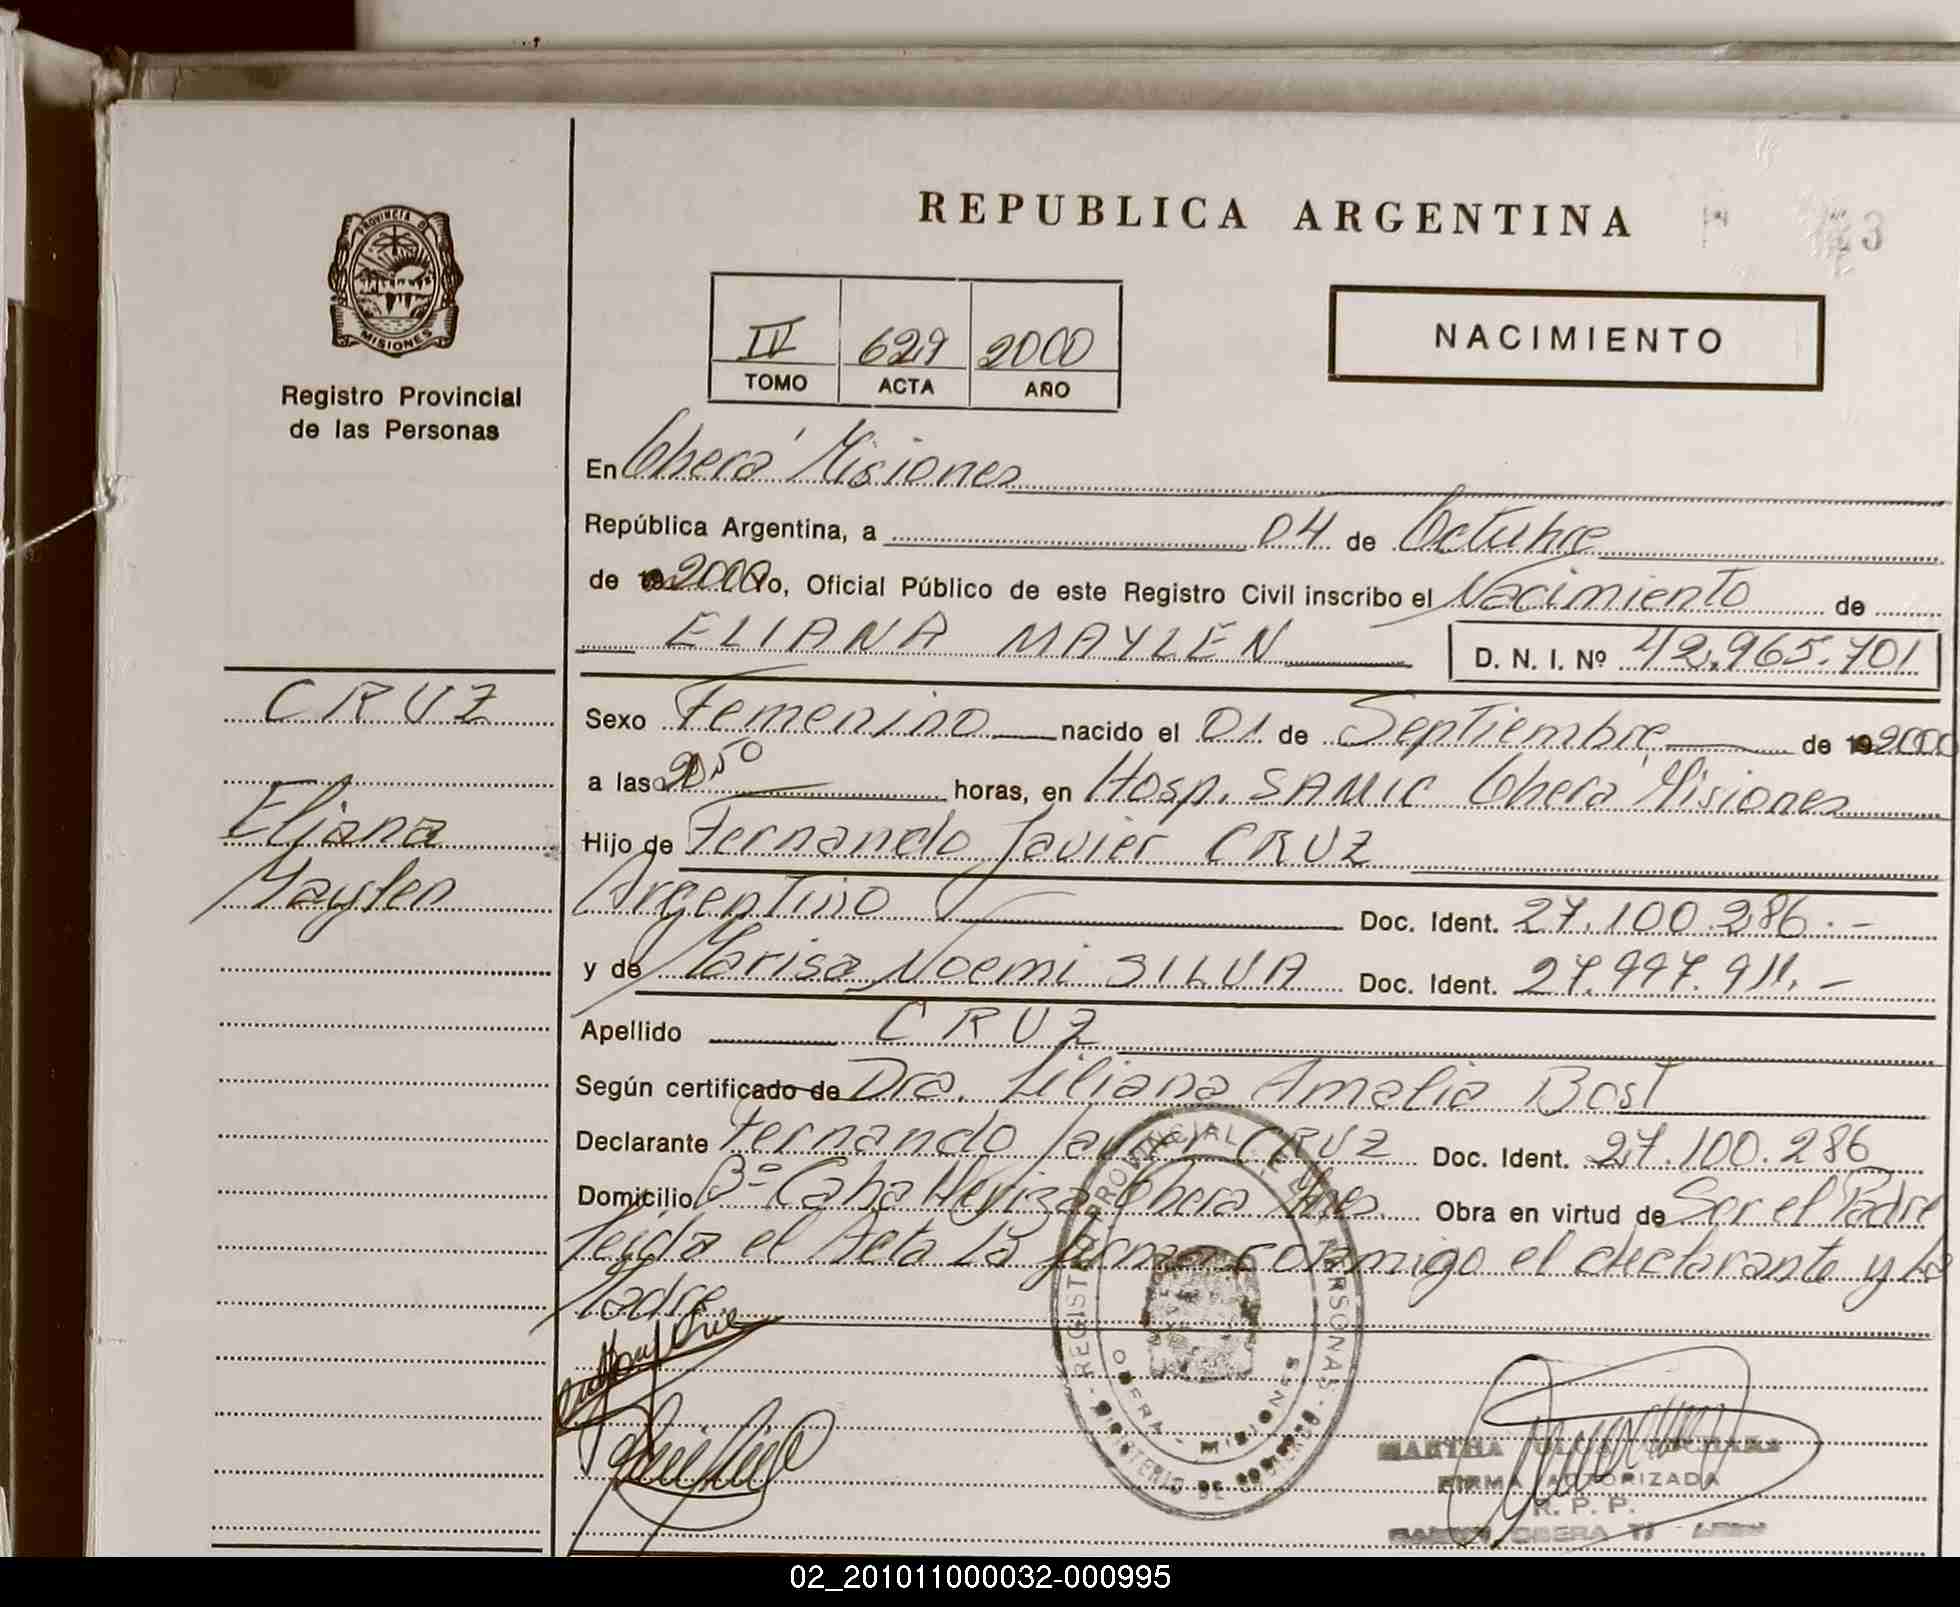 REPUBLICA ARGENTINA
3
PROVINCIA D
MISIONES
Registro Provincial
de las Personas
IV 629 2000
TOMO ACTA AÑO
NACIMIENTO
En Oberá Misiones
República Argentina, a 04 de Octubre
de 19 2000 Yo, Oficial Público de este Registro Civil inscribo el Nacimiento de
ELIANA MAYLEN D. N. I. Nº 42.965.701
CRUZ
Eliana
Maylen
Sexo Femenino nacido el 01 de Septiembre de 19 2000
a las 50 horas, en Hosp. SAMIC Oberá Misiones
Hijo de Fernando Javier CRUZ
Argentino Doc. Ident. 27.100.286.-
y de Marisa Noemi SILVA Doc. Ident. 27.997.911.-
Apellido CRUZ
Según certificado de Dra. Liliana Amalia Bost
Declarante Fernando Javier CRUZ Doc. Ident. 27.100.286
Domicilio Bº Caba Oberá Mnes. Obra en virtud de Ser el Padre
Leida el Acta la firma conmigo el declarante y la
Madre
REGISTRO PROVINCIAL DE LAS PERSONAS
OBERA - MISIONES
MINISTERIO DE GOBIERNO
MARTHA OLGA
FIRMA AUTORIZADA
R. P. P.
OBERA
02_201011000032-000995